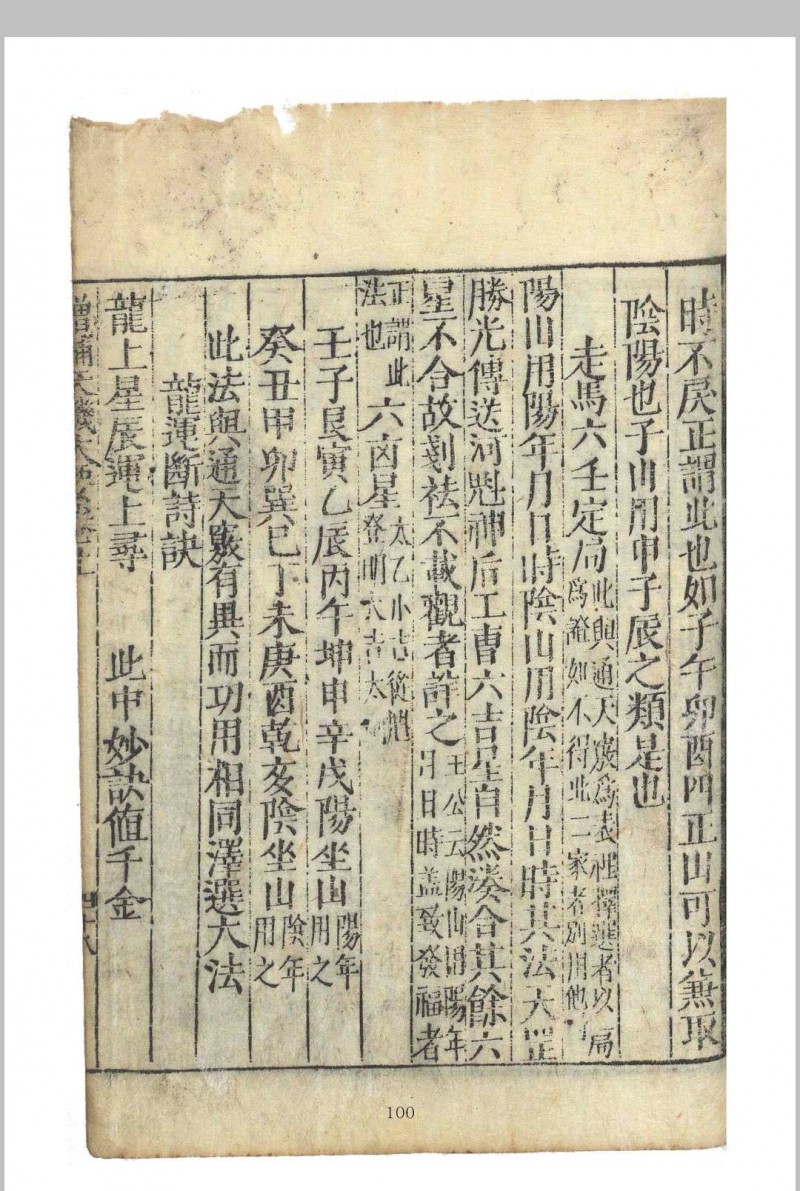 時不戾正謂此也如子午卯酉四正山可以兼取
陰陽也子山用申子辰之類是也
走馬六壬定局此與通天竅爲表裡擇選者以局爲證如不得此二家者別用他
陽山用陽年月日時陰山用陰年月日時其法天罡
勝光傳送河魁神后工曹六吉星自然湊合其餘六
星不合故剗袪不載觀者詳之王公云陽山用陽年月日時蓋致發福者
正謂此法也六凶星太乙小吉從魁登明大吉太
壬子艮寅乙辰丙午坤申辛戌陽坐山陽年用之
癸丑甲卯巽巳丁未庚酉乾亥陰坐山陰年用之
此法與通天竅有異而功用相同澤選大法
龍運斷詩訣
龍上星辰運上尋 此中妙訣值千金
增補天機大
四十八
100